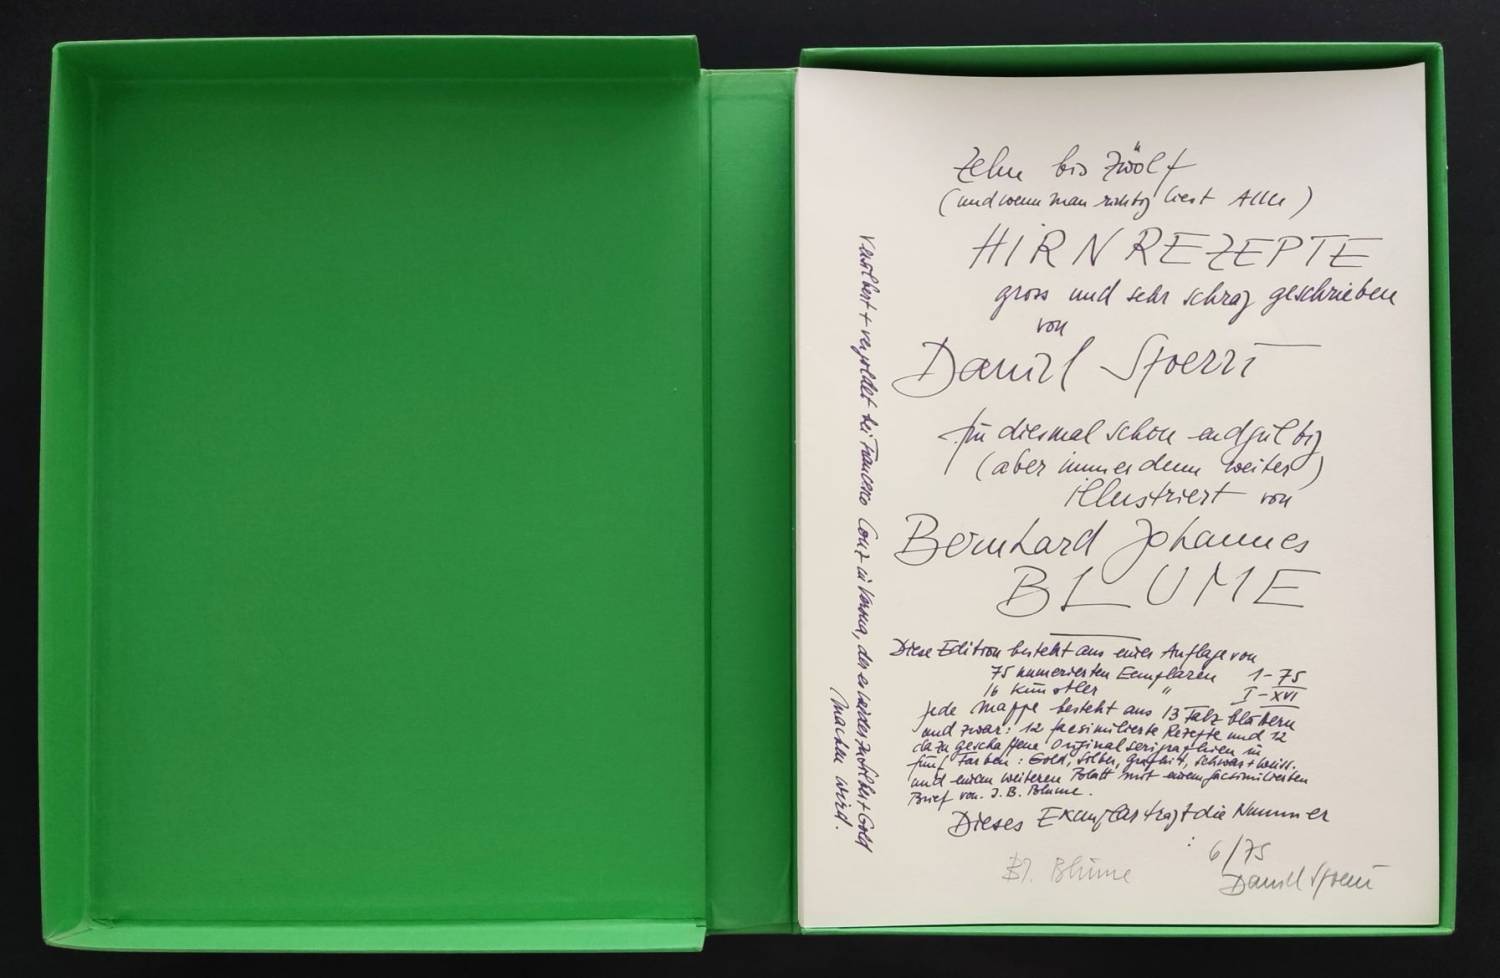 Zehn bis Zwölf
(und wenn man richtig liest Alle)
HIRNREZEPTE
gross und sehr schräg geschrieben
von
Daniel Spoerri
für diesmal schon endgültig
(aber immer dennoch weiter)
illustriert von
Bernhard Johannes
BLUME
Diese Edition besteht aus einer Auflage von
75 numerierten Exemplaren 1-75
16 Künstler " I-XVI
jede Mappe besteht aus 13 Falzblättern
und zwar: 12 facsimilierte Rezepte und 12
dazu geschaffene Originalserigraphien in
fünf Farben: Gold, Silber, Graphit, schwarz + weiss.
und einem weiteren Blatt mit einem facsimilierten
Brief von J. B. Blume.
Dieses Exemplar trägt die Nummer
: 6/75
BJ. Blume
Daniel Spoerri
Versilbert + vergoldet bei Francesco Conz in Verona, der es wieder zu Silber + Gold
machen wird.